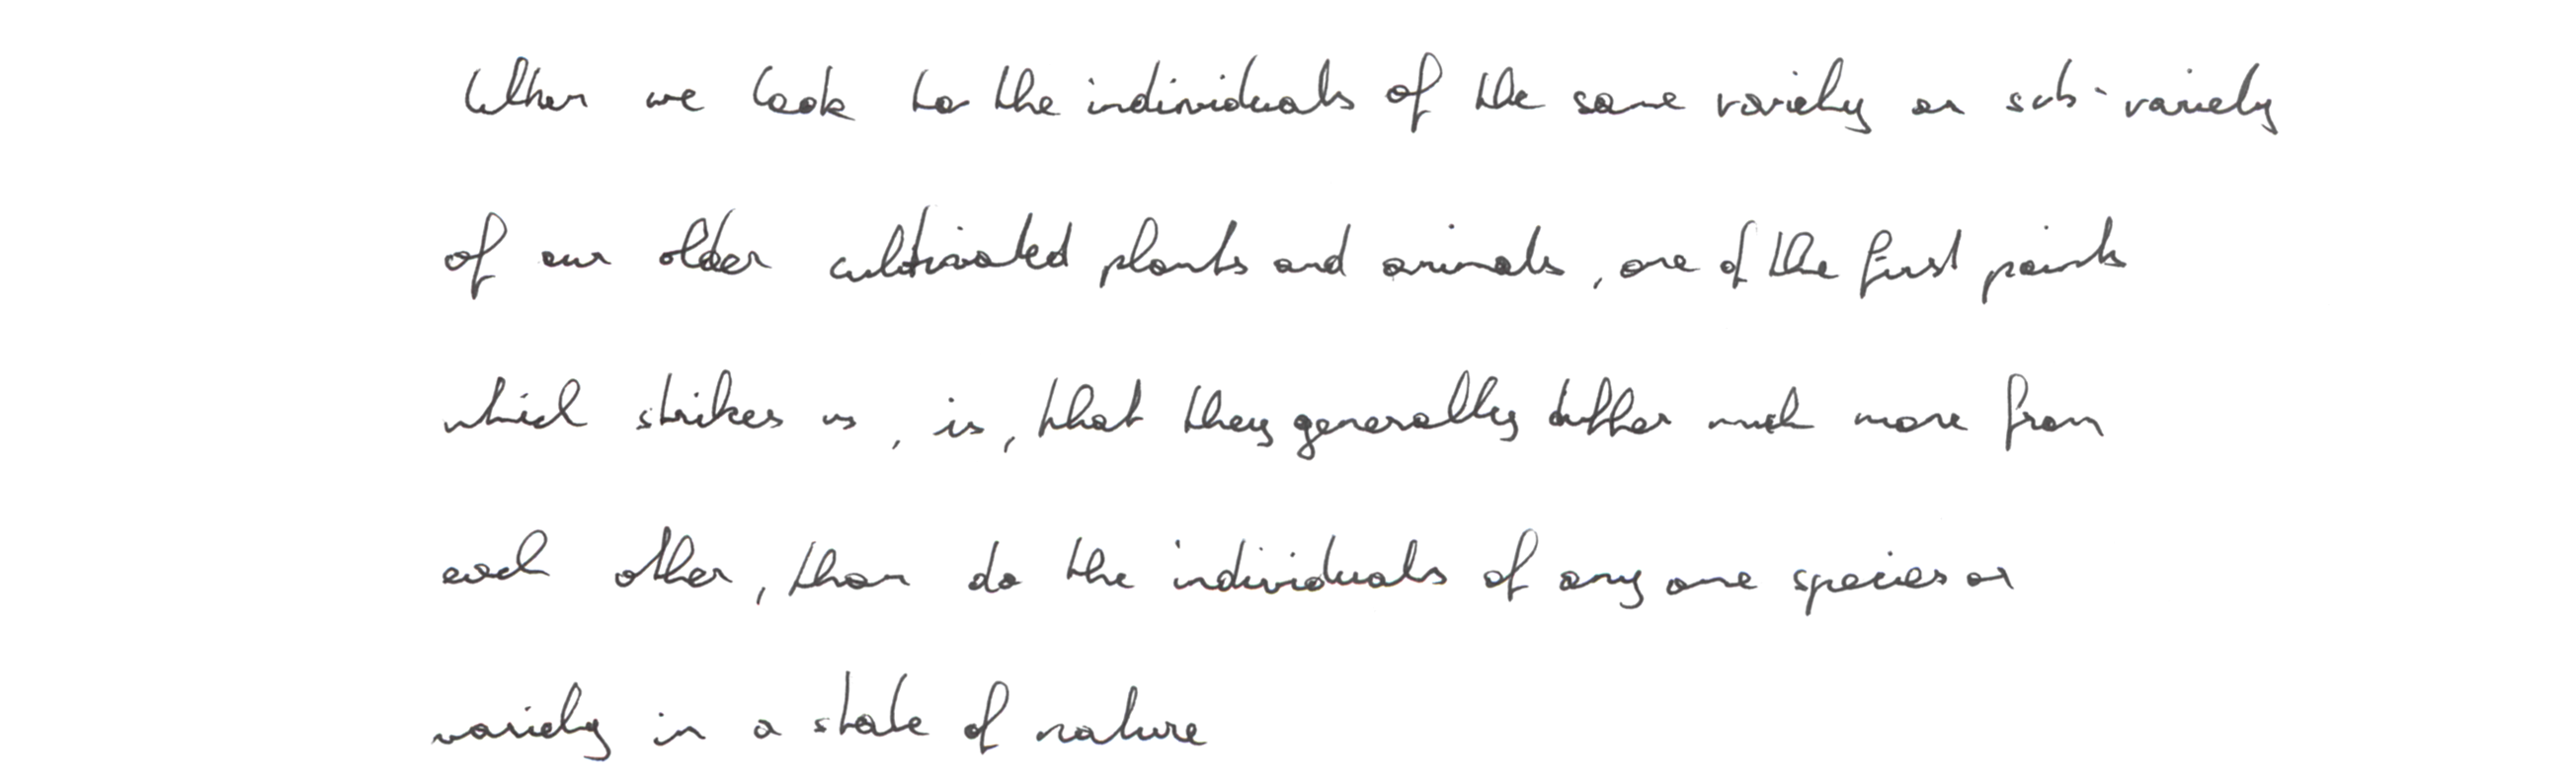 When we look to the individuals of the same variety or sub-variety
of our older cultivated plants and animals, one of the first points
which strikes us, is, that they generally differ much more from
each other, than do the individuals of any one species or
variety in a state of nature